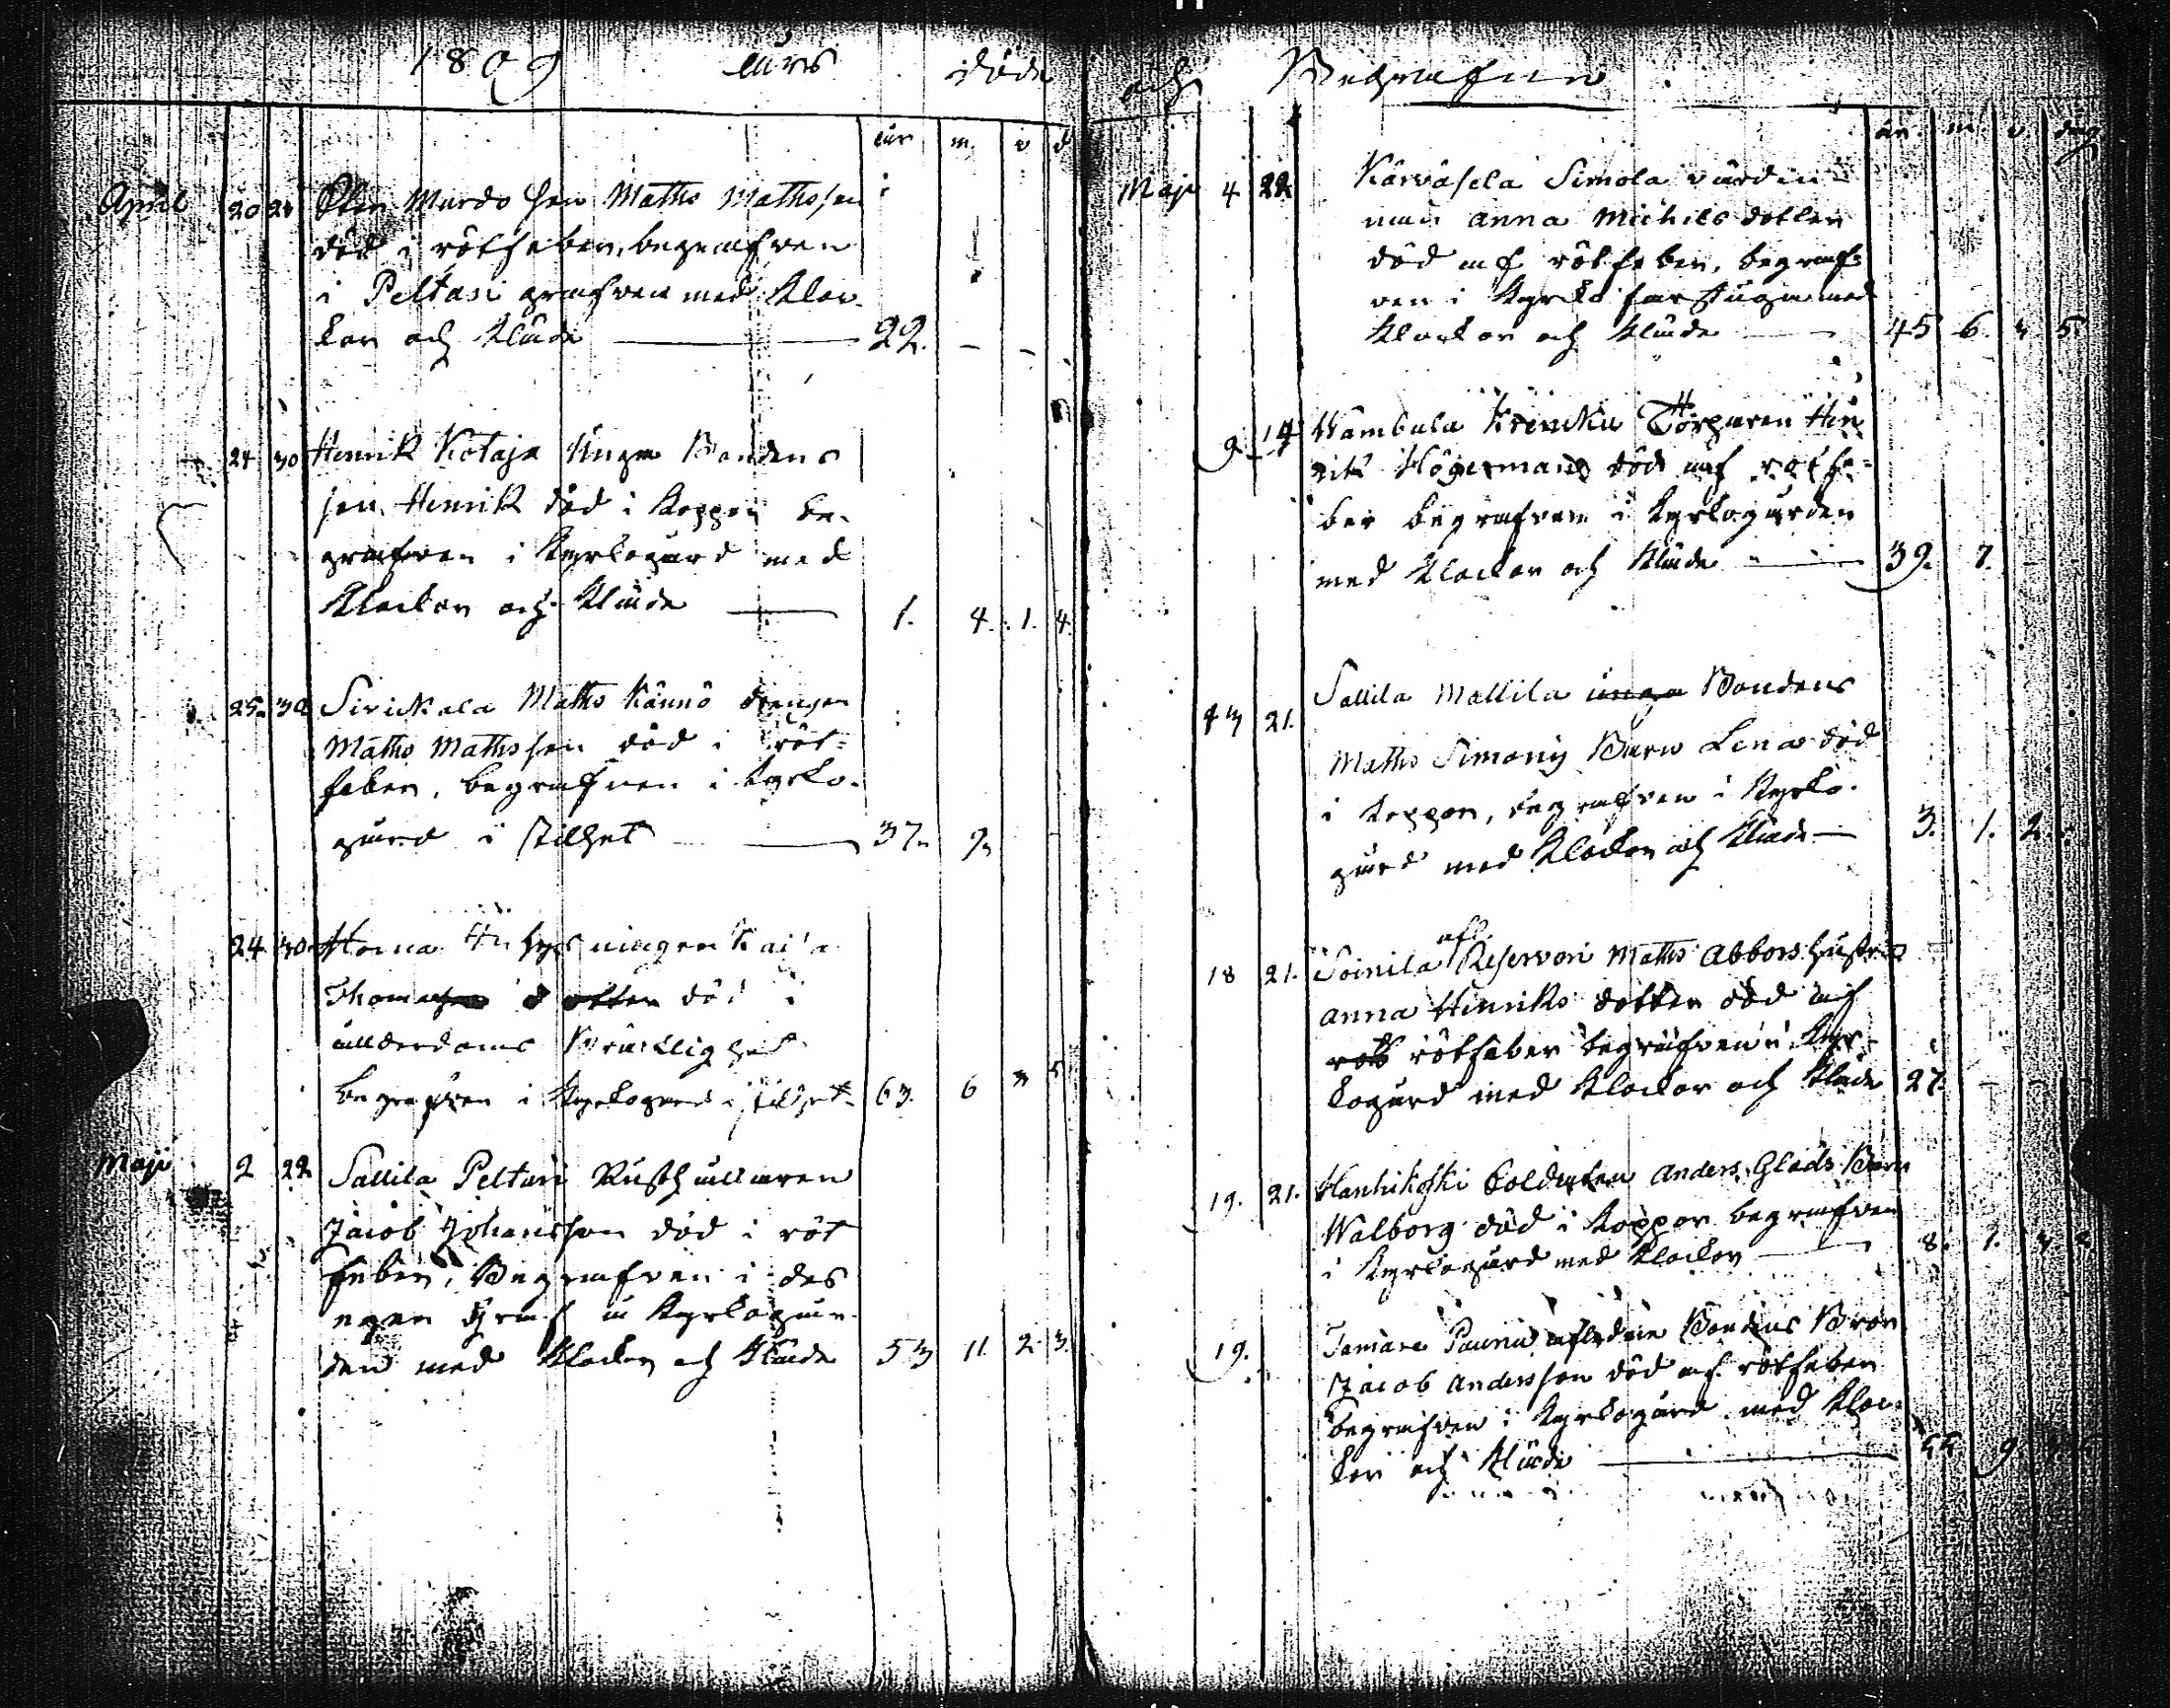 1809 års döde
år m. v d
April 20 23 Sten Murdo Son Maths Mathsson
död i rötfeber, begrafven
i Peltari grafven med Kloc-
kor och Kläde 22. - -
24 30 Henrik Kotaja Unga Bondens
son Henrik död i Koppor be-
grafven i Kyrkogård med
Klockor och Kläde 1. 4. 1. 4.
25. 30 Sirickala Maths Kännö drengen
Maths Mathsson död i röt=
feber, begrafven i Kyrko-
gård i stillhet 37. 9.
24 30 Horna Inhysningen Kaisa
Thomas dotter död i
ålderdoms Bräcklighet
begrafven i Kyrkogård i stillhet 63. 6 3 5
Maji 2 22 Sallila Peltari Rusthållaren
Jacob Johansson död i röt
feber, Begrafven i des
egen Graf i Kyrkogår-
den med Klockor och Kläde 53 11 2 3.
och Begrafne
år m v dag
Maji 4 22 Karväselä Simola värdin-
nan Anna Michels dotter
död af rötfeber, begraf=
ven i Kyrko farstugu med
Klockor och Kläde 45 6. 3 5
9. 14 Wambula Krencku Torparen Hen
rik Högerman död af rötfe=
ber begrafven i Kyrkogården
med Klockor och Kläde 39. 7.
13 21. Sallila Mallila unga Bondens
Maths Simons Barn Lena död
i Koppor, begrafven i Kyrko-
gård med Klockor och Kläde 3. 1. 2
18 21. Soinila afl. Reserven Maths Abbors hustru
Anna Henriks dotter död af
röt rötfeber begrafven i Kyr-
kogård med Klockor och Kläde 27.
19. 21. Hanhikoski Soldaten Anders Glads Barn
Walborg död i Koppor begrafven
i Kyrkogård med Klockor 8. 1.
19. Tamare Paunu aflidne Bondens Bror
Jacob Andersson död af rötfeber
begrafven i Kyrkogård med Kloc-
kor och Kläde 55. 9